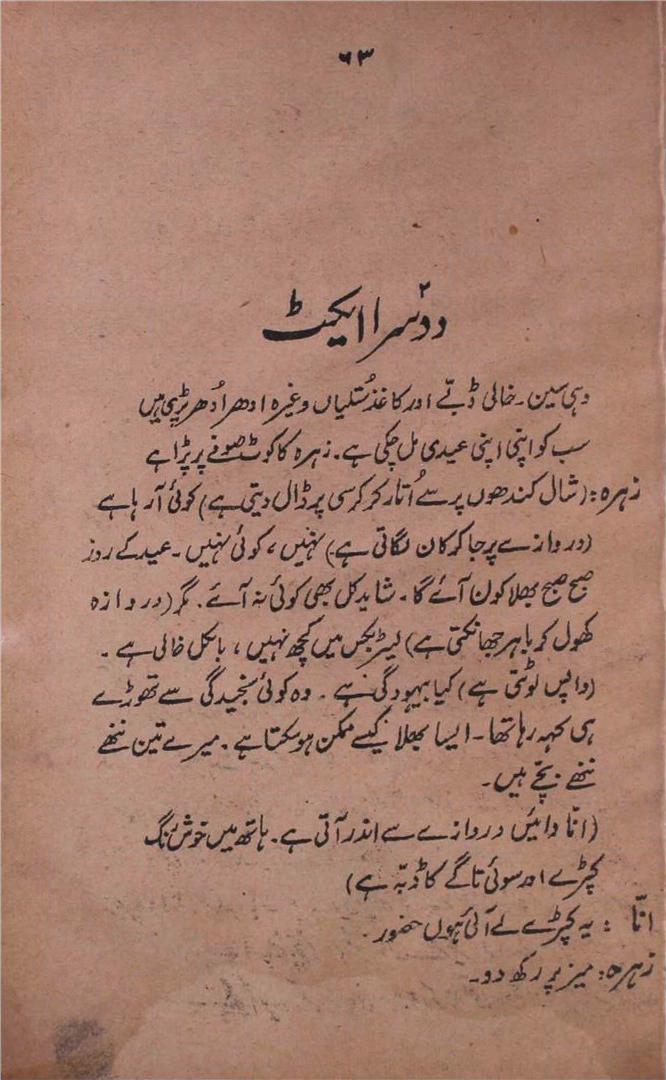 ۶۳
دوسرا ایکٹ
وہی سین۔ خالی ڈبّے اور کاغذ سُتلیاں وغیرہ ادھر اُدھر پڑی ہیں
سب کو اپنی اپنی عیدی مل چکی ہے۔ زہرہ کا کوٹ صوفے پر پڑا ہے
زہرہ: (شال کندھوں پر سے اُتار کر کرسی پر ڈال دیتی ہے) کوئی آ رہا ہے
(دروازے پر جا کر کان لگاتی ہے) نہیں، کوئی نہیں۔ عید کے روز
صبح صبح بھلا کون آئے گا۔ شاید کل بھی کوئی نہ آئے۔ مگر (دروازہ
کھول کر باہر جھانکتی ہے) لیٹر بکس میں کچھ نہیں، بالکل خالی ہے۔
(واپس لوٹتی ہے) کیا بیہودگی ہے۔ وہ کوئی سنجیدگی سے تھوڑے
ہی کہہ رہا تھا۔ ایسا بھلا کیسے ممکن ہو سکتا ہے۔ میرے تین ننھے
ننھے بچّے ہیں۔
(انّا دائیں دروازے سے اندر آتی ہے۔ ہاتھ میں خوش رنگ
کپڑے اور سوئی تاگے کا ڈبّہ ہے)
انّا : یہ کپڑے لے آئی ہوں حضور۔
زہرہ: میز پر رکھ دو۔